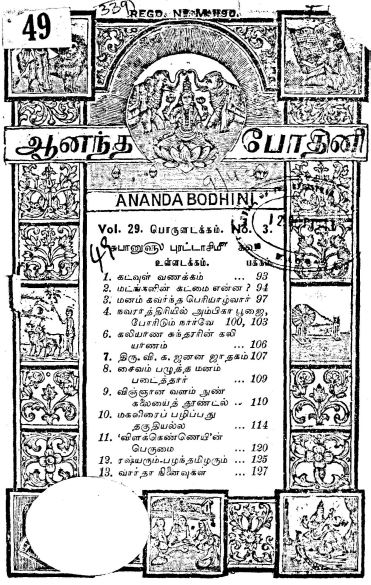 339
REGD. No M.1190.
49
ஆனந்த போதினி
ANANDA BODHINI
Vol. 29. பொருளடக்கம். No. 3.
சுபானுளு புரட்டாசிமீ
உள்ளடக்கம். பக்கம்.
1. கடவுள் வணக்கம் ... 93
2. மடங்களின் கடமை என்ன? 94
3. மனம் கவர்ந்த பெரியாழ்வார் 97
4. நவராத்திரியில் அம்பிகா பூஜை,
போரிடும் நார்வே 100, 103
6. கலியாண சுந்தரரின் கலி
யாணம் ... 106
7. திரு. வி. க. ஜனன ஜாதகம் 107
8. சைவம் பழுத்த மனம்
படைத்தார் ... 109
9. விஞ்ஞான வளம் நுண்
கலையைத் தூண்டல் ... 110
10. மகளிரைப் பழிப்பது
தகுதியல்ல ... 114
11. 'விளக்கெண்ணெயி'ன்
பெருமை ... 120
12. ரஷ்யரும்-பழந்தமிழரும் ... 125
13. வார்தா நினைவுகள் ... 127